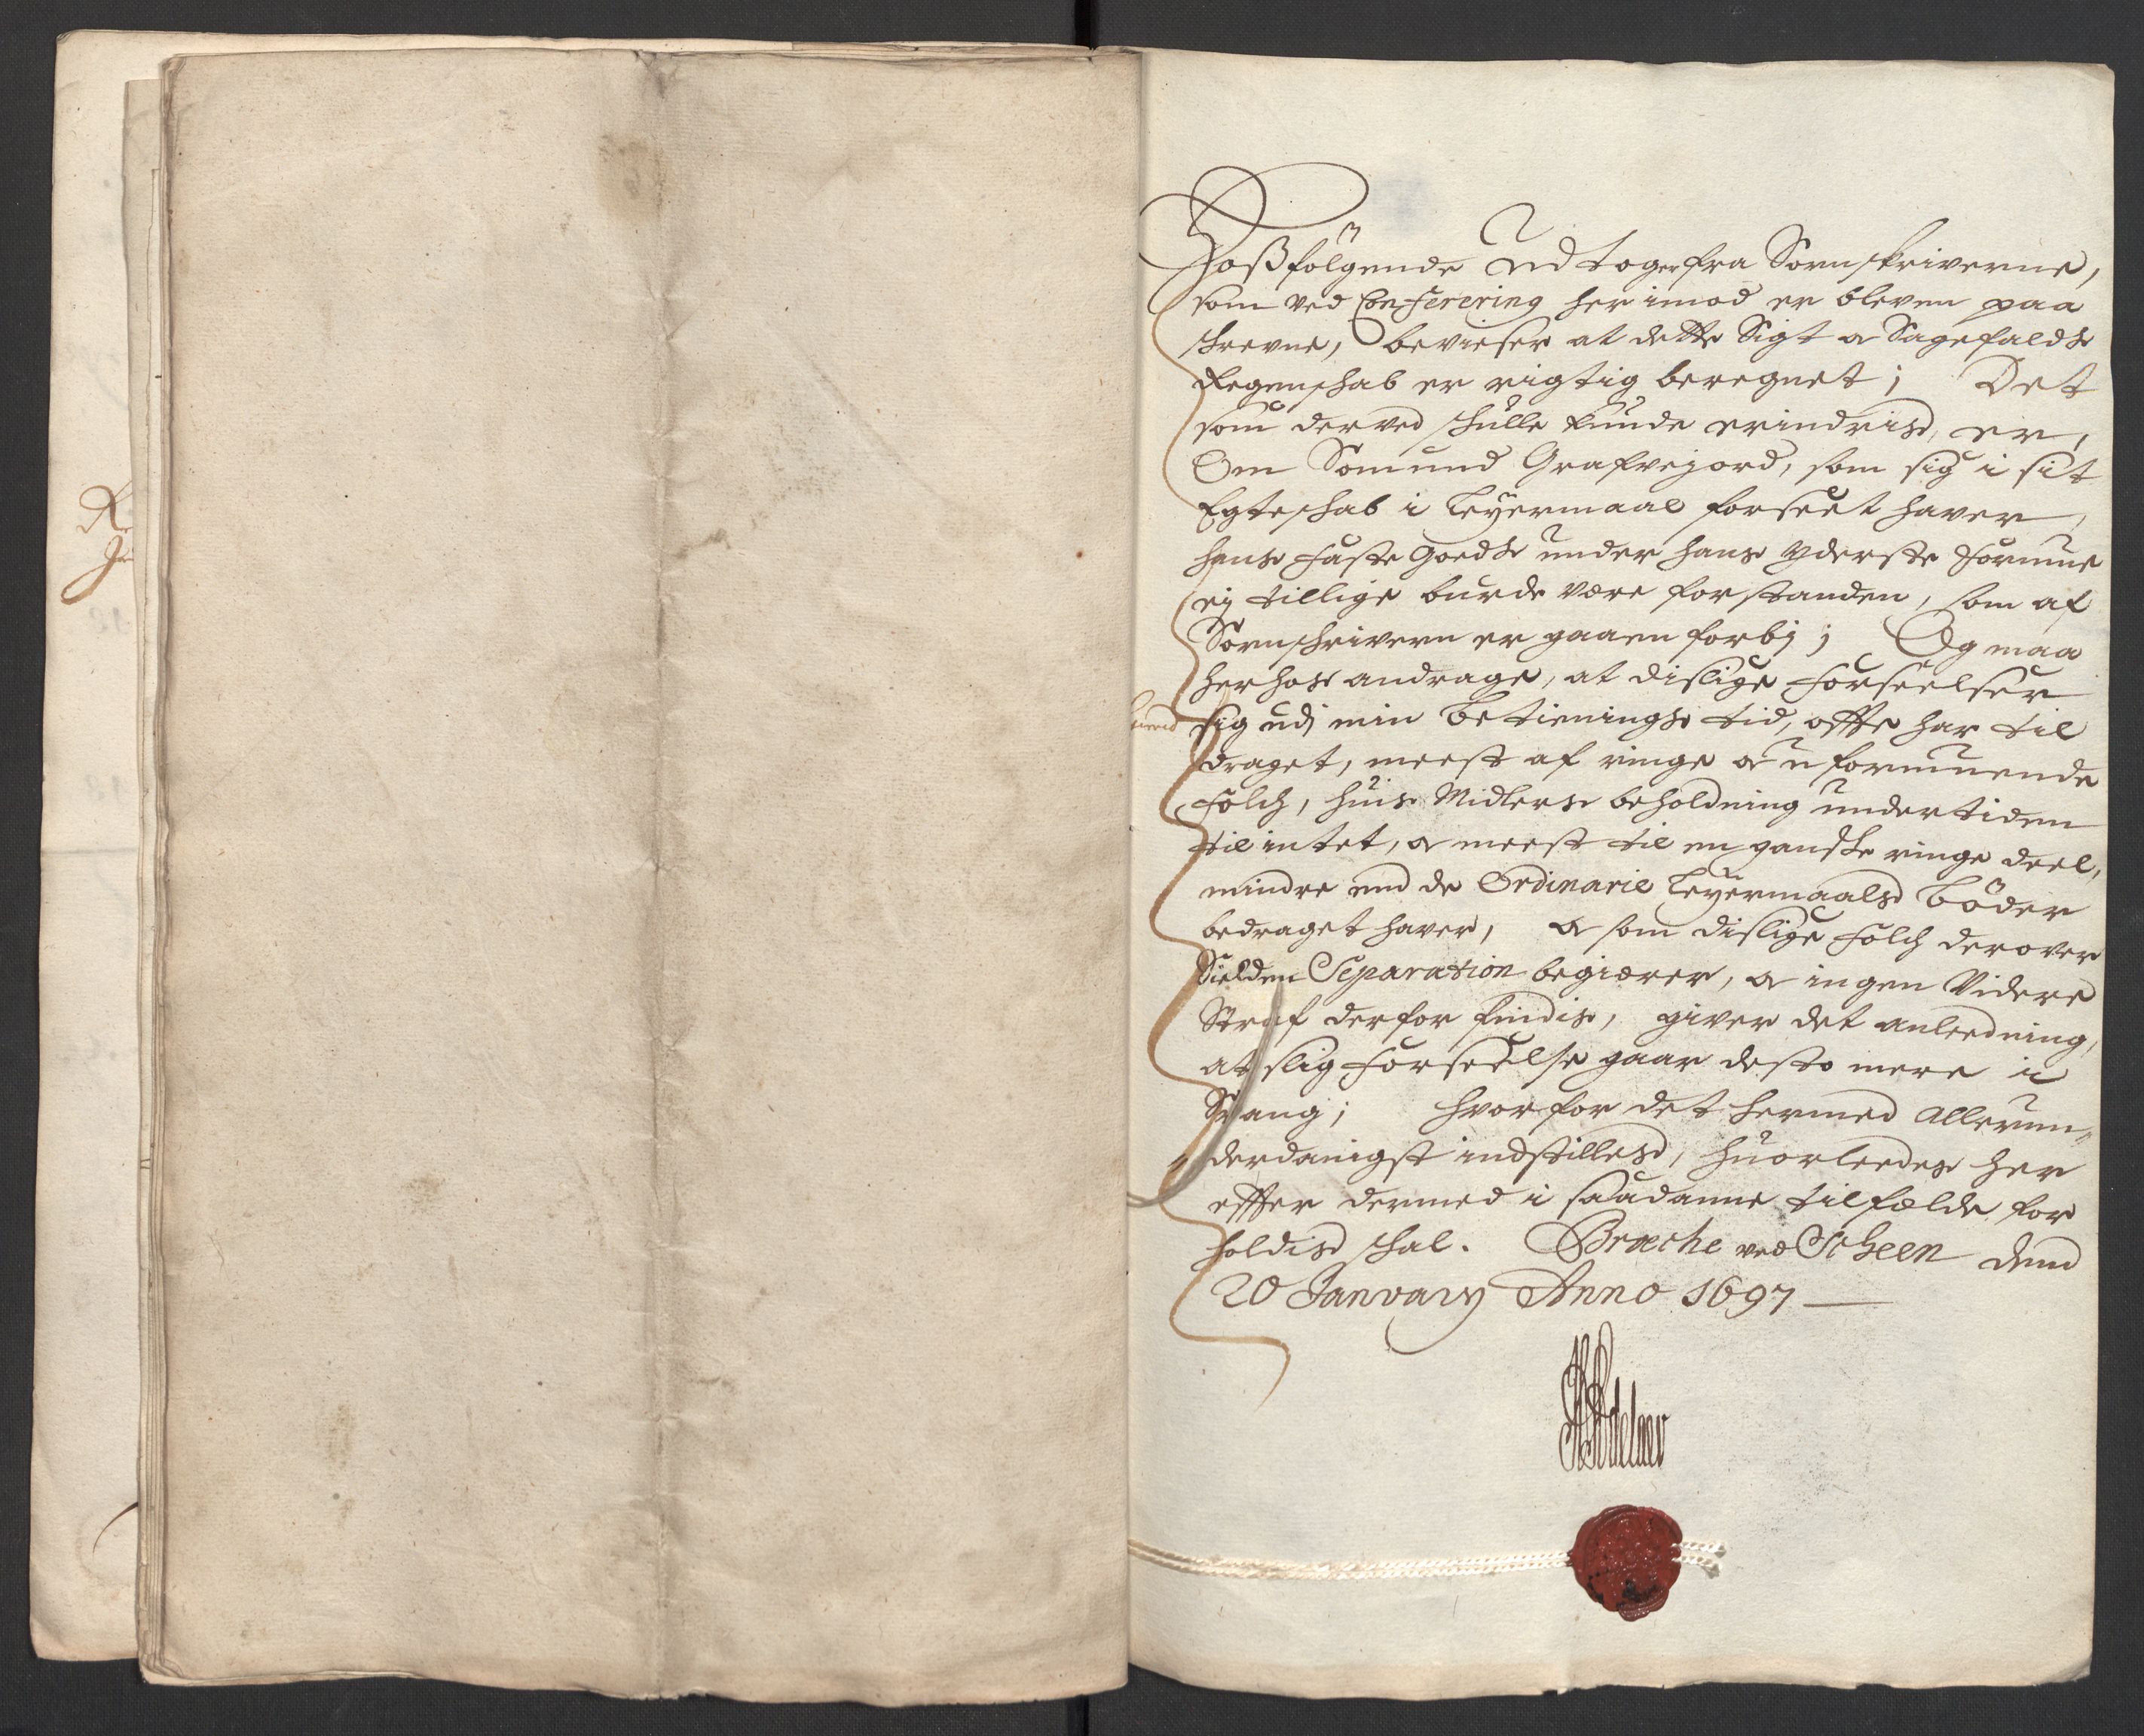 Hoßfölgende Udtoger fra Sornskriverne,
som ved Conferering her imod er bleven paa
skrevne, bevieser at dette Sigt & Sagefalds
Regenskab er rigtig beregnet; Det
som derved skulle kunde erindris, er,
Om Somund Grafvejord, som sig i sit
Egteskab i Leyermaal forseet haver,
hans faste Goeds under hans yderste formue
ej tillige burde være forstanden, som af
Sornskrivern er gaaen forbj; Og maa
herhos andrage, at dislige forseelser
sig udj min Betienings tid, offte har til
draget, meest af ringe & uformuende
folch, huis Midlers beholdning undertiden
til intet, & meest til en ganske ringe deel,
mindre end de Ordinarie Leyermaals Böder
bedraget haver, & som dislige folch derover
Sielden Separation begiærer, & ingen Videre
Straf derfor findis, giver det anleedning,
at slig forseelse gaar desto mere i
Svang; hvorfor det hermed allerun-
derdanigst indstilles, huorleedes her
effter dermed i saadanne tilfælde for
holdis skal. Brache ved Scheen dend
20 January Anno 1697